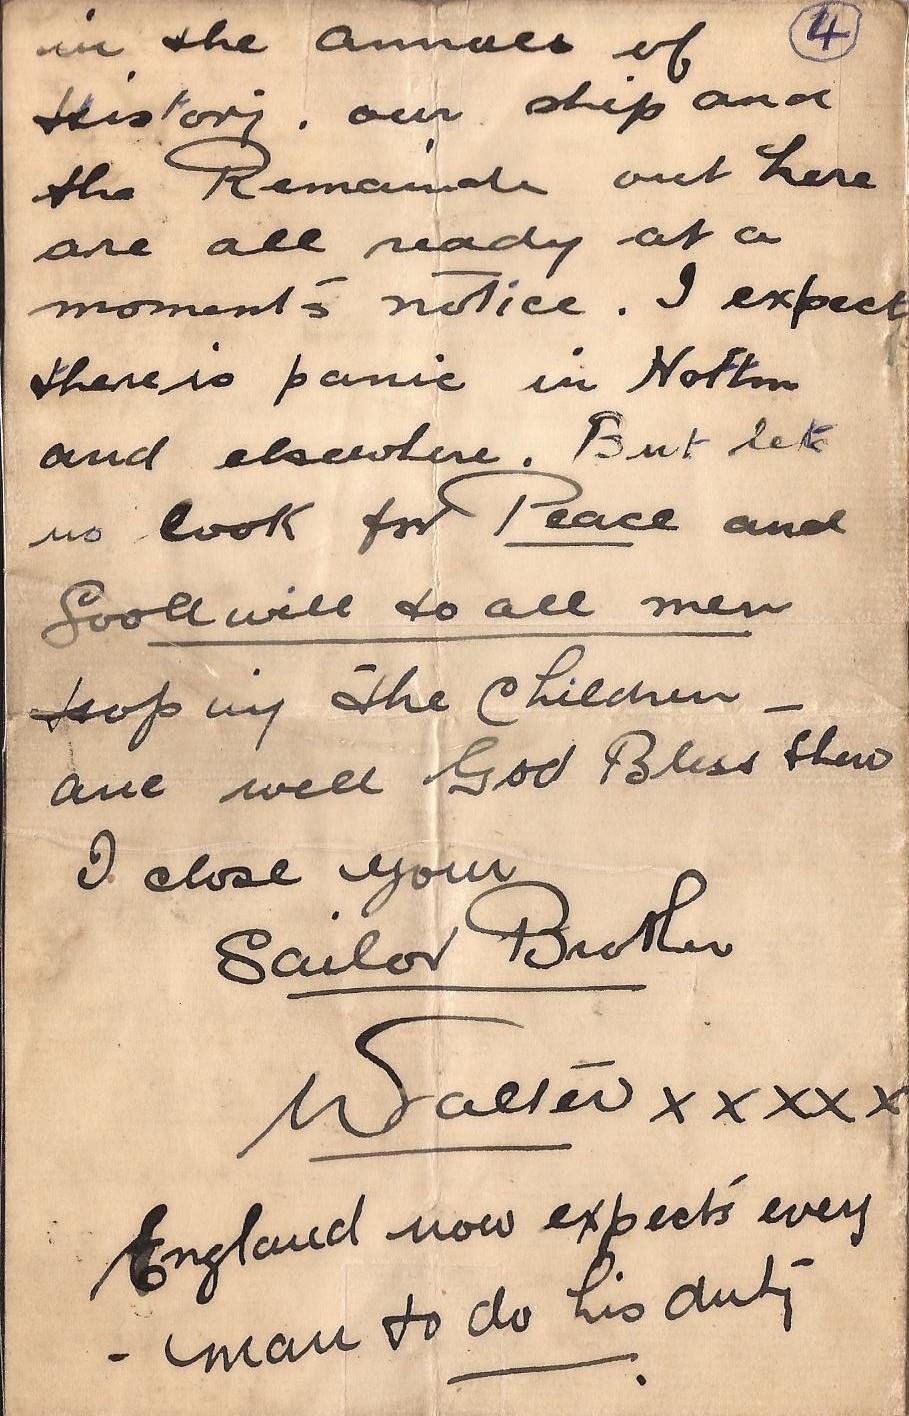 4
in the annals of
History. our ship and
the Remainde out here
are all ready at a
moment's notice. I expect
there is panic in Nottm
and elsewhere. But let
us look for Peace and
Goodwill to all men
Hoping the Children -
are well God Bless them
I close your
Sailor Brother
Walter x x x x x
England now expects every
- man to do his duty.